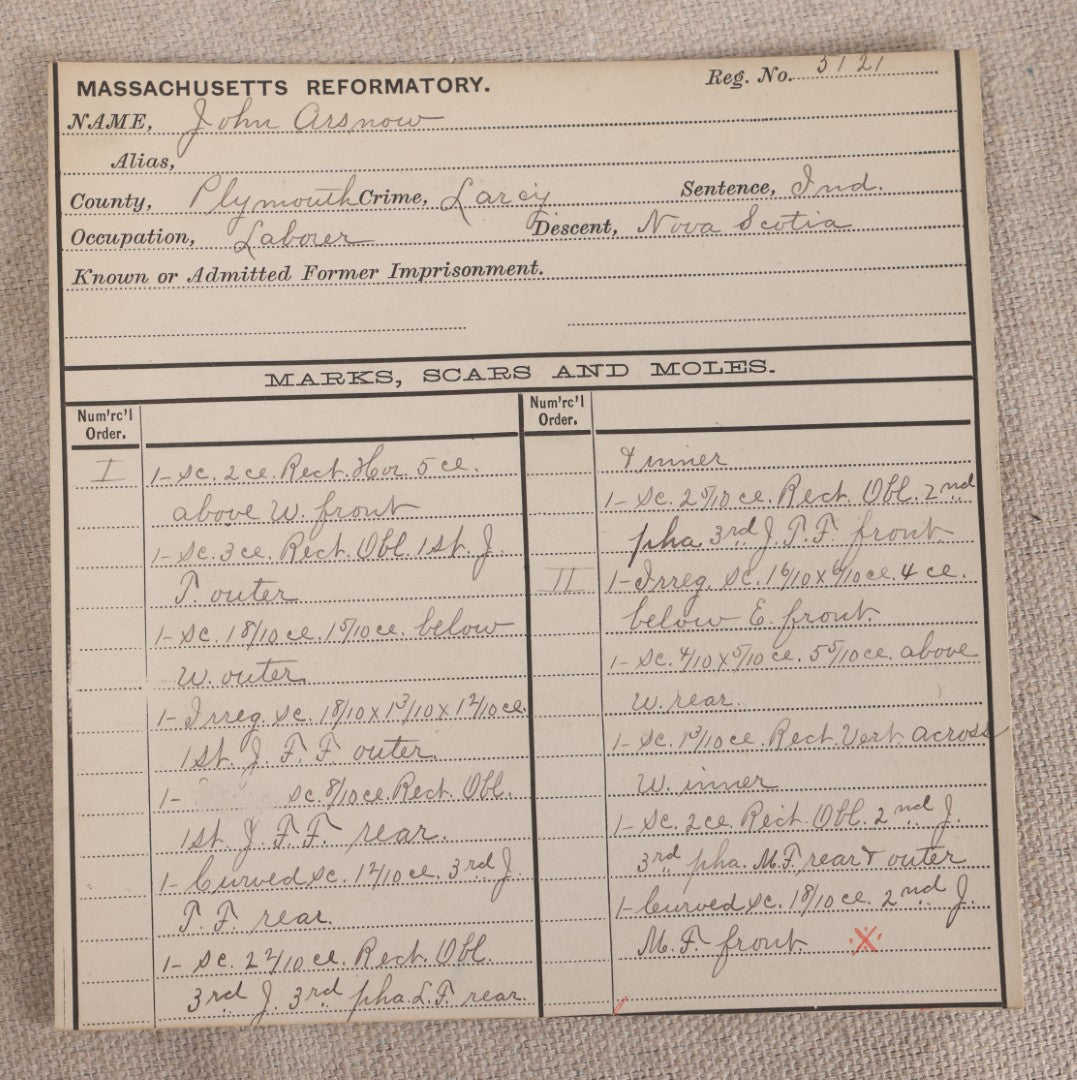 MASSACHUSETTS REFORMATORY. Reg. No. 5121
NAME, John Arsnow
Alias,
County, Plymouth Crime, Larcy Sentence, Ind.
Occupation, Laborer Descent, Nova Scotia
Known or Admitted Former Imprisonment.
MARKS, SCARS AND MOLES.
Num'rc'l Order.
I 1- Sc. 2 ce. Rect. Hor. 5 ce.
above W. front
1- Sc. 3 ce. Rect. Obl. 1st. J.
T. outer
1- Sc. 18/10 ce. 15/10 ce. below
W. outer.
1- Irreg. Sc. 18/10 x 13/10 x 12/10 ce.
1st. J. F. F. outer.
1- sc. 8/10 ce. Rect. Obl.
1st. J. F. F. rear.
1- Curved sc. 12/10 ce. 3rd J.
F. rear.
1- sc. 22/10 ce. Rect. Obl.
3rd J 3rd pha. L. F. rear.
Num'rc'l Order.
& inner
1- Sc. 25/10 ce. Rect. Obl. 2nd
pha. 3rd J. F. front
II 1- Irreg. Sc. 16/10 x 9/10 ce. 4 ce.
below E. front.
1- Sc. 4/10 x 5/10 ce. 55/10 ce. above
W. rear.
1- Sc. 13/10 ce. Rect. Vert. across
W. inner
1- Sc. 2 ce. Rect. Obl. 2nd J.
3rd pha. M. F. rear & outer
1- Curved sc. 18/10 ce. 2nd J.
M. F. front. X